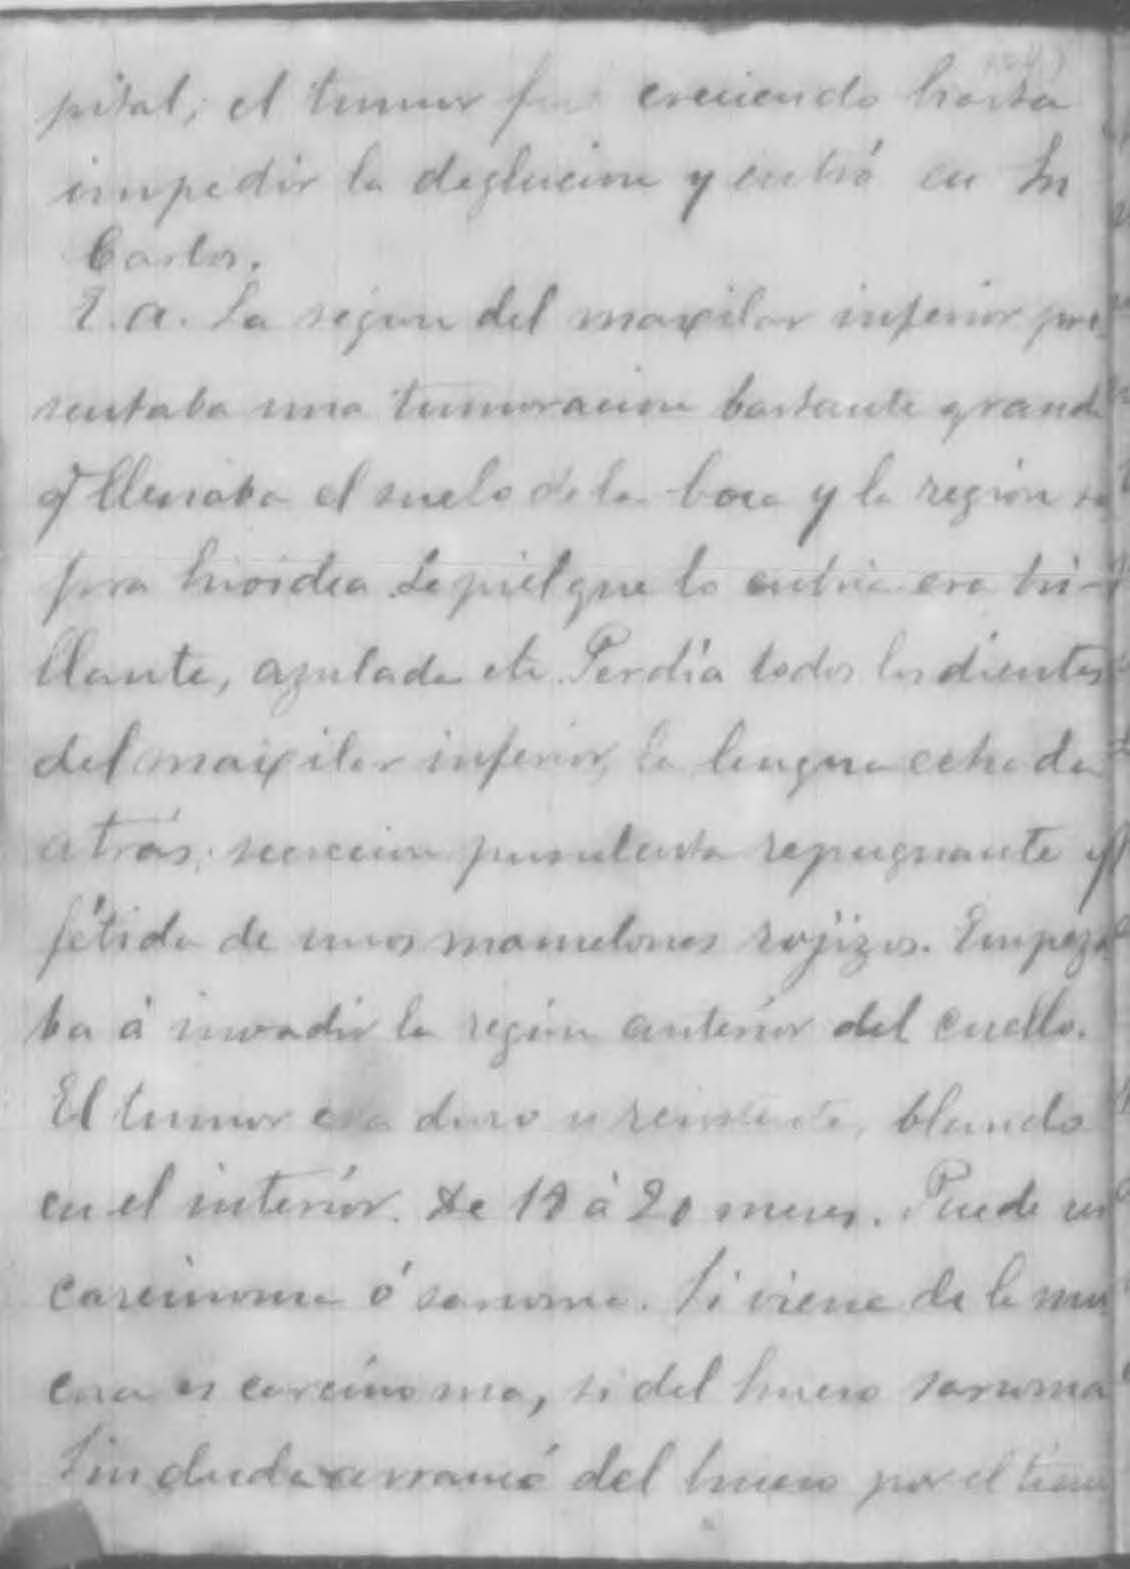 pital, el tumor fue creciendo hasta
impedir la deglucion y entró en Sn
Carlos.
E. A. La region del maxilar inferior pre
sentaba una tumoracion bastante grande
q llenaba el suelo de la boca y la región su
pra hioidea La piel que lo cubria era bri-
llante, azulada etc. Perdía todos los dientes
del maxilar inferior, la lengua echada
atrás, secrecion purulenta repugnante y
fétida de unos mamelones rojizos. Empeza
ba á invadir la region anterior del cuello.
El tumor era duro y resistente, blando
en el interior. De 19 á 20 meses. Puede ser
carcinoma ó sarcoma. Si viene de la mu
cosa es carcinoma, si del hueso sarcoma
Sin duda arrancó del hueso por el tiem